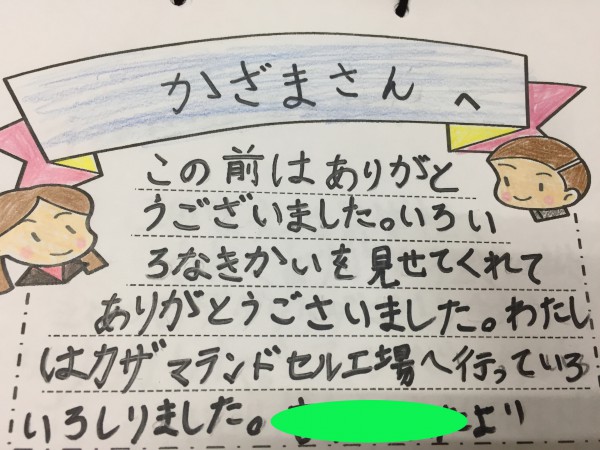 かざまさん へ
この前はありがと
うございました。いろい
ろなきかいを見せてくれて
ありがとうごさいました。わたし
はカザマランドセル工場へ行っていろ
いろしりました。 より